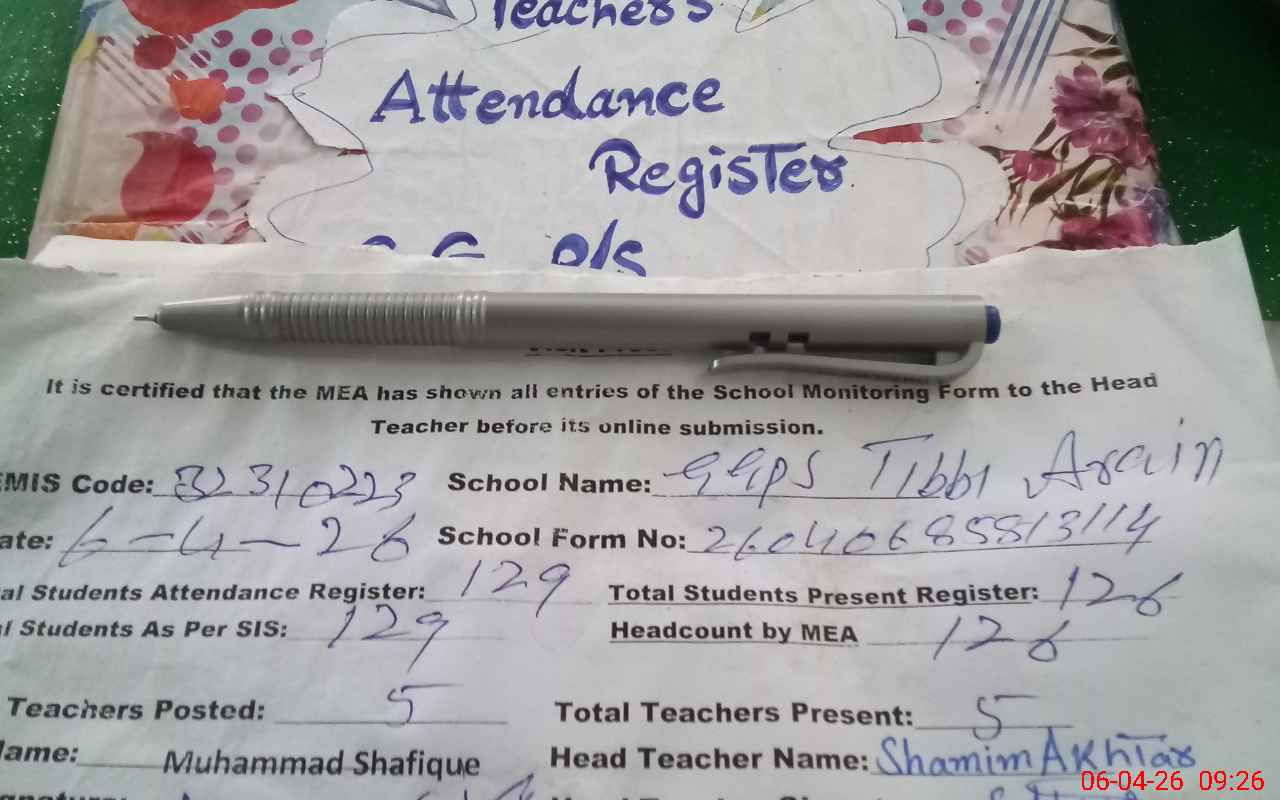 Teachers
Attendance
Register
P/S
It is certified that the MEA has shown all entries of the School Monitoring Form to the Head
Teacher before its online submission.
EMIS Code: 32310223 School Name: GGPS Tibbi Arain
ate: 6-4-26 School Form No: 26040685813114
al Students Attendance Register: 129 Total Students Present Register: 126
l Students As Per SIS: 129 Headcount by MEA 126
Teachers Posted: 5 Total Teachers Present: 5
Name: Muhammad Shafique Head Teacher Name: Shamim Akhtar
06-04-26 09:26